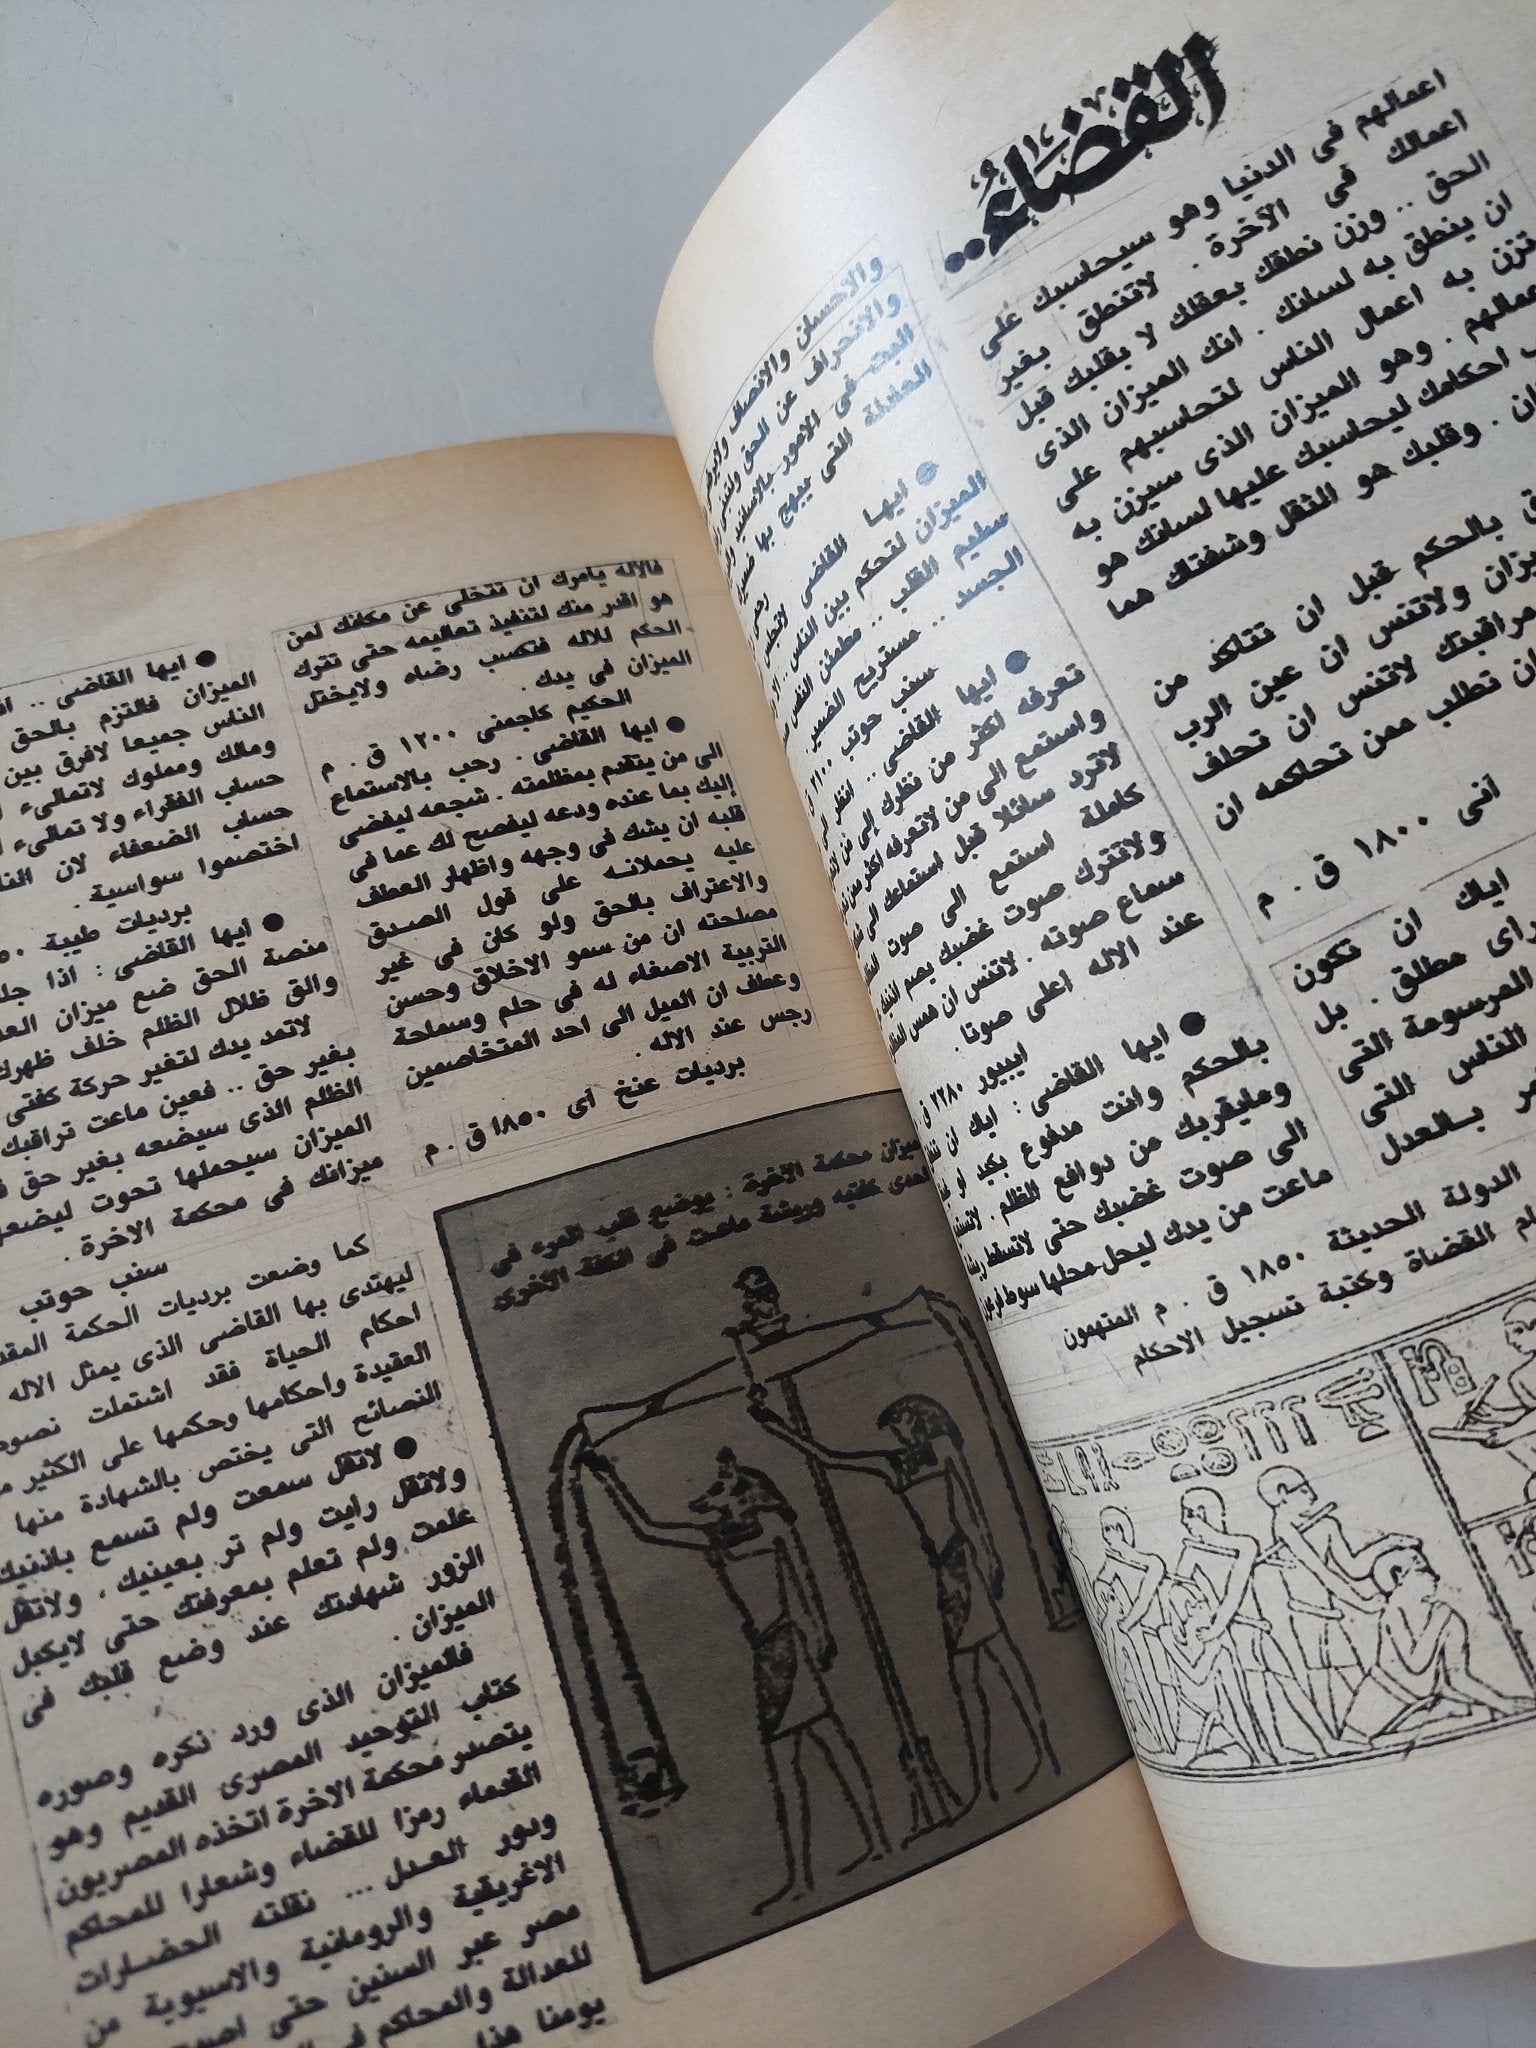 القضاء..
اعمالهم فى الدنيا وهو سيحاسبك على
اعمالك فى الآخرة. لاتنطق بغير
الحق .. وزن نطقك بعقلك لا بقلبك قبل
ان ينطق به لسانك. انك الميزان الذى
تزن به اعمال الناس لتحاسبهم على
اعمالهم. وهو الميزان الذى سيزن به
احكامك ليحاسبك عليها لسانك هو
وقلبك هو الثقل وشفتاك هما
بالحكم قبل ان تتاكد من
ولاتنس ان عين الرب
لاتنس ان تحلف
ان تطلب ممن تحاكمه ان
انى ١٨٠٠ ق . م
اياك ان تكون
راى مطلق . بل
المرسومة التى
الناس التى
بالعدل
الدولة الحديثة ١٨٥٠ ق . م المتهمون
القضاة وكتبة تسجيل الاحكام
والاحسان والانصاف
والانحراف عن الحق
البت فى الامور
العادلة التى يبهج بها
● ايها القاضى
الميزان لتحكم بين الناس
سليم القلب .. مطمئن النفس
الجسد .. مستريح الضمير.
سنب حوتب
● ايها القاضى .. انظر الى
تعرفه اكثر من نظرك إلى من
واستمع الى من لاتعرفه اكثر من
لاترد سائلا قبل استماعك الى
كاملة استمع الى صوت
ولاتترك صوت غضبك يصم
سماع صوته. لاتنس ان همس
عند الاله اعلى صوتا.
ايبيور ٢٢٨٠ ق
● ايها القاضى: اياك ان
بالحكم وانت مدفوع بكيد او
ومايقربك من دوافع الظلم.
الى صوت غضبك حتى لاتسقط
ماعت من يدك ليحل محلها سوط
فالاله يامرك ان تتخلى عن مكانك لمن
هو اقدر منك لتنفيذ تعاليمه حتى تترك
الحكم للاله فتكسب رضاه ولايختل
الميزان فى يدك.
الحكيم كاجمنى ١٢٠٠ ق . م
● ايها القاضى. رحب بالاستماع
الى من يتقدم بمظلمته. شجعه ليفضى
إليك بما عنده ودعه ليفصح لك عما فى
قلبه ان يشك فى وجهه واظهار العطف
عليه يحملانه على قول الصدق
والاعتراف بالحق ولو كان فى غير
مصلحته ان من سمو الاخلاق وحسن
التربية الاصغاء له فى حلم وسماحة
وعطف ان الميل الى احد المتخاصمين
رجس عند الاله.
برديات عنخ اى ١٨٥٠ ق . م
ميزان محكمة الآخرة : يوضع قلب المرء فى
احدى كفتيه وريشة ماعت فى الكفة الاخرى
● ايها القاضى ..
الميزان فالتزم بالحق
الناس جميعا لافرق بين
ومالك ومملوك لاتمالىء
حساب الفقراء ولا تمالىء
حساب الضعفاء لان
اختصموا سواسية.
برديات طيبة
● ايها القاضى: اذا
منصة الحق ضع ميزان
والق ظلال الظلم خلف ظهرك
لاتمد يدك لتغير حركة كفتى
بغير حق .. فعين ماعت تراقبك
الظلم الذى سيضعه بغير حق
الميزان سيحملها تحوت ليضعها
ميزانك فى محكمة الاخرة.
سنب حوتب
كما وضعت برديات الحكمة
ليهتدى بها القاضى الذى يمثل الاله
احكام الحياة فقد اشتملت نصوص
العقيدة واحكامها وحكمها على الكثير
النصائح التى يختص بالشهادة منها
● لاتقل سمعت ولم تسمع باذنيك
ولاتقل رايت ولم تر بعينيك. ولاتقل
علمت ولم تعلم بمعرفتك حتى لايكبل
الزور شهادتك عند وضع قلبك فى
الميزان.
فالميزان الذى ورد ذكره وصوره
كتاب التوحيد المصرى القديم وهو
يتصدر محكمة الاخرة اتخذه المصريون
القدماء رمزا للقضاء وشعارا للمحاكم
ودور العدل ... نقلته الحضارات
الاغريقية والرومانية والاسيوية من
مصر عبر السنين حتى
للعدالة والمحاكم فى
يومنا هذا